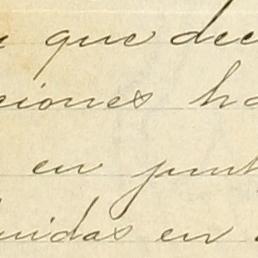 que dec
ciones ha
en junt
uidas en